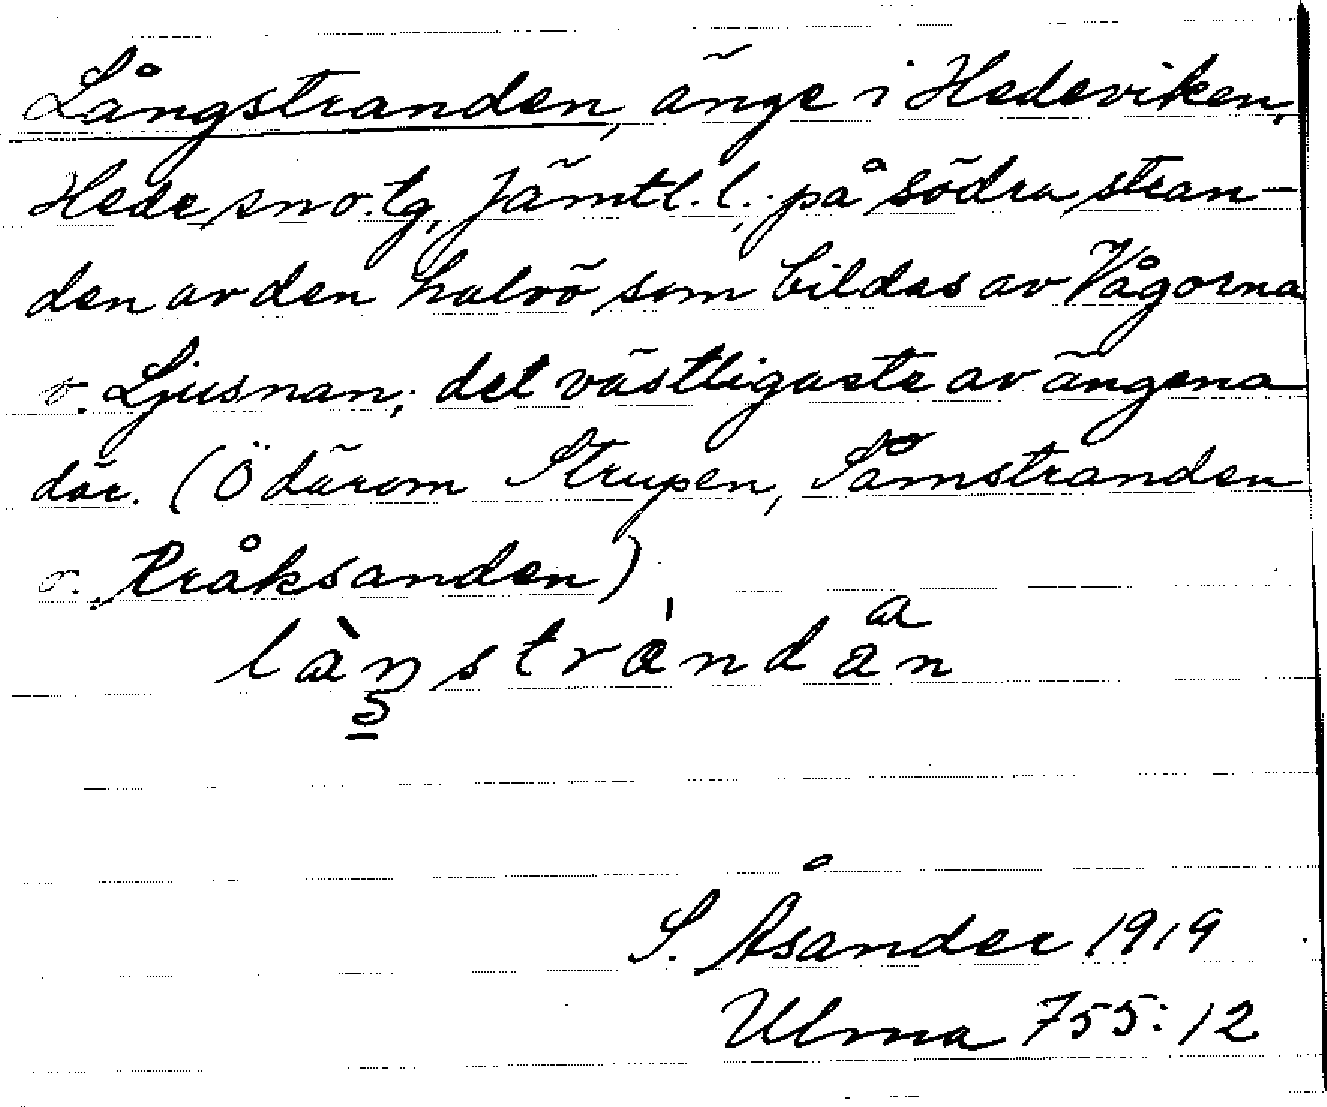 Långstranden, änge i Hedeviken,
Hede sn o. tg, Jämtl. l. på södra stran-
den av den halvö som bildas av Vågorna
o. Ljusnan; det västligaste av ängena
där. (Ö därom Strupen, Såmstranden
o. Kråksanden)
S. Åsander 1919
Ulma 755:12